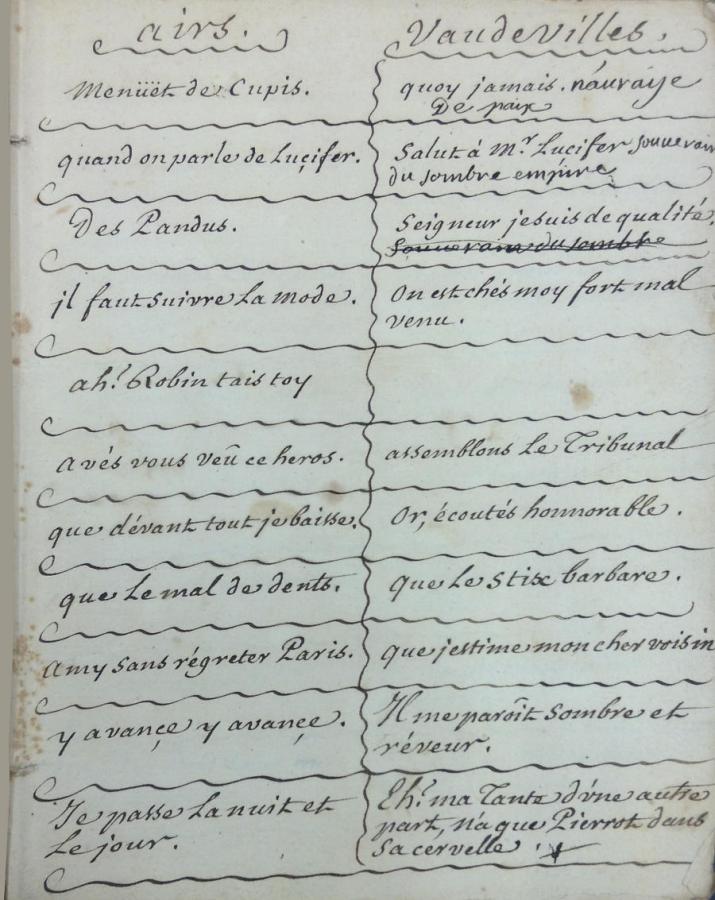 airs.
Vaudevilles.
Menüët de Cupis.
quoy jamais. n'auraije
De paix
quand on parle de Luçifer.
Salut á Mr. Lucifer souverain
du sombre empire
Des Pandus.
Seigneur je suis de qualité.
Souverain du sombre
jl faut suivre La mode.
On est chés moy fort mal
venu.
ah! Robin tais toy
avés vous veû ce heros.
assemblons Le Tribunal
que dévant tout je baisse.
Or, écoutés honnorable.
que Le mal de dents.
Que Le Stix barbare.
Amy sans régreter Paris.
que j'estime mon cher voisin
y avançe y avançe.
Il me paroît sombre et
réveur.
Je passe La nuit et
Le jour.
Eh! ma Tante d'vne autre
part, n'a que Pierrot dans
Sa cervelle.